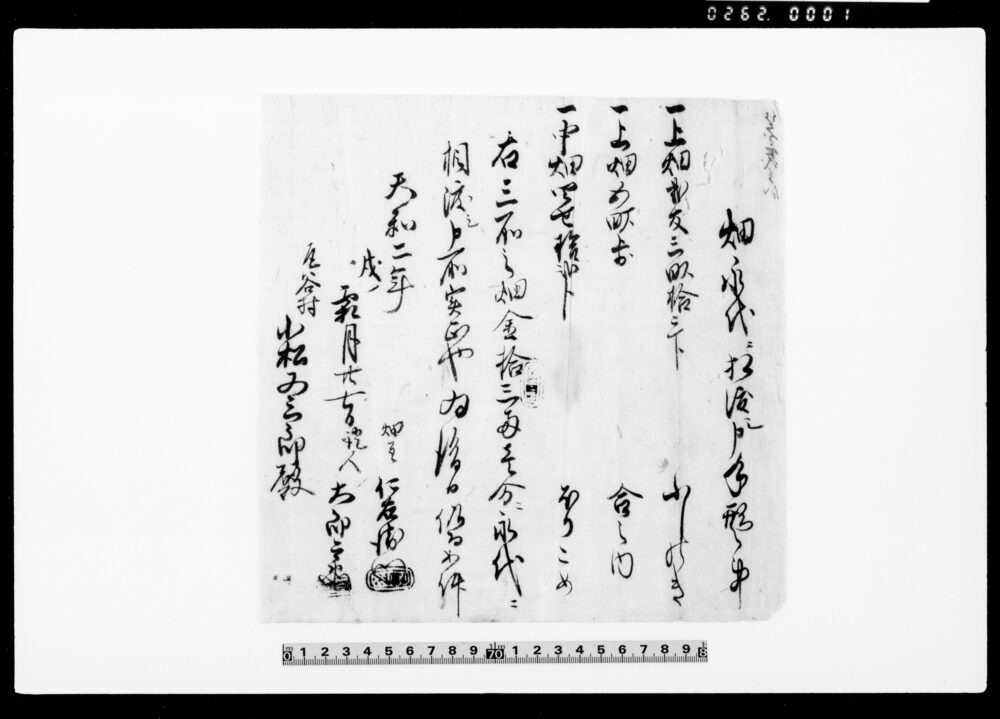 0262.0001
畑永代ニ相渡シ申手形之事
一上畑弐反三畝拾三卜
一上畑五畝歩 合之内
一中畑四セ拾卜 ほりこめ
右三所之畑金拾三両壱分ニ永代ニ
相渡シ申所実正也為後日仍而如件
天和二年
戌ノ霜月廿 日
畑主 仁右衛門
証人 太郎兵衛
谷村
小松五三郎殿
0 1 2 3 4 5 6 7 8 9 10 1 2 3 4 5 6 7 8 9 18